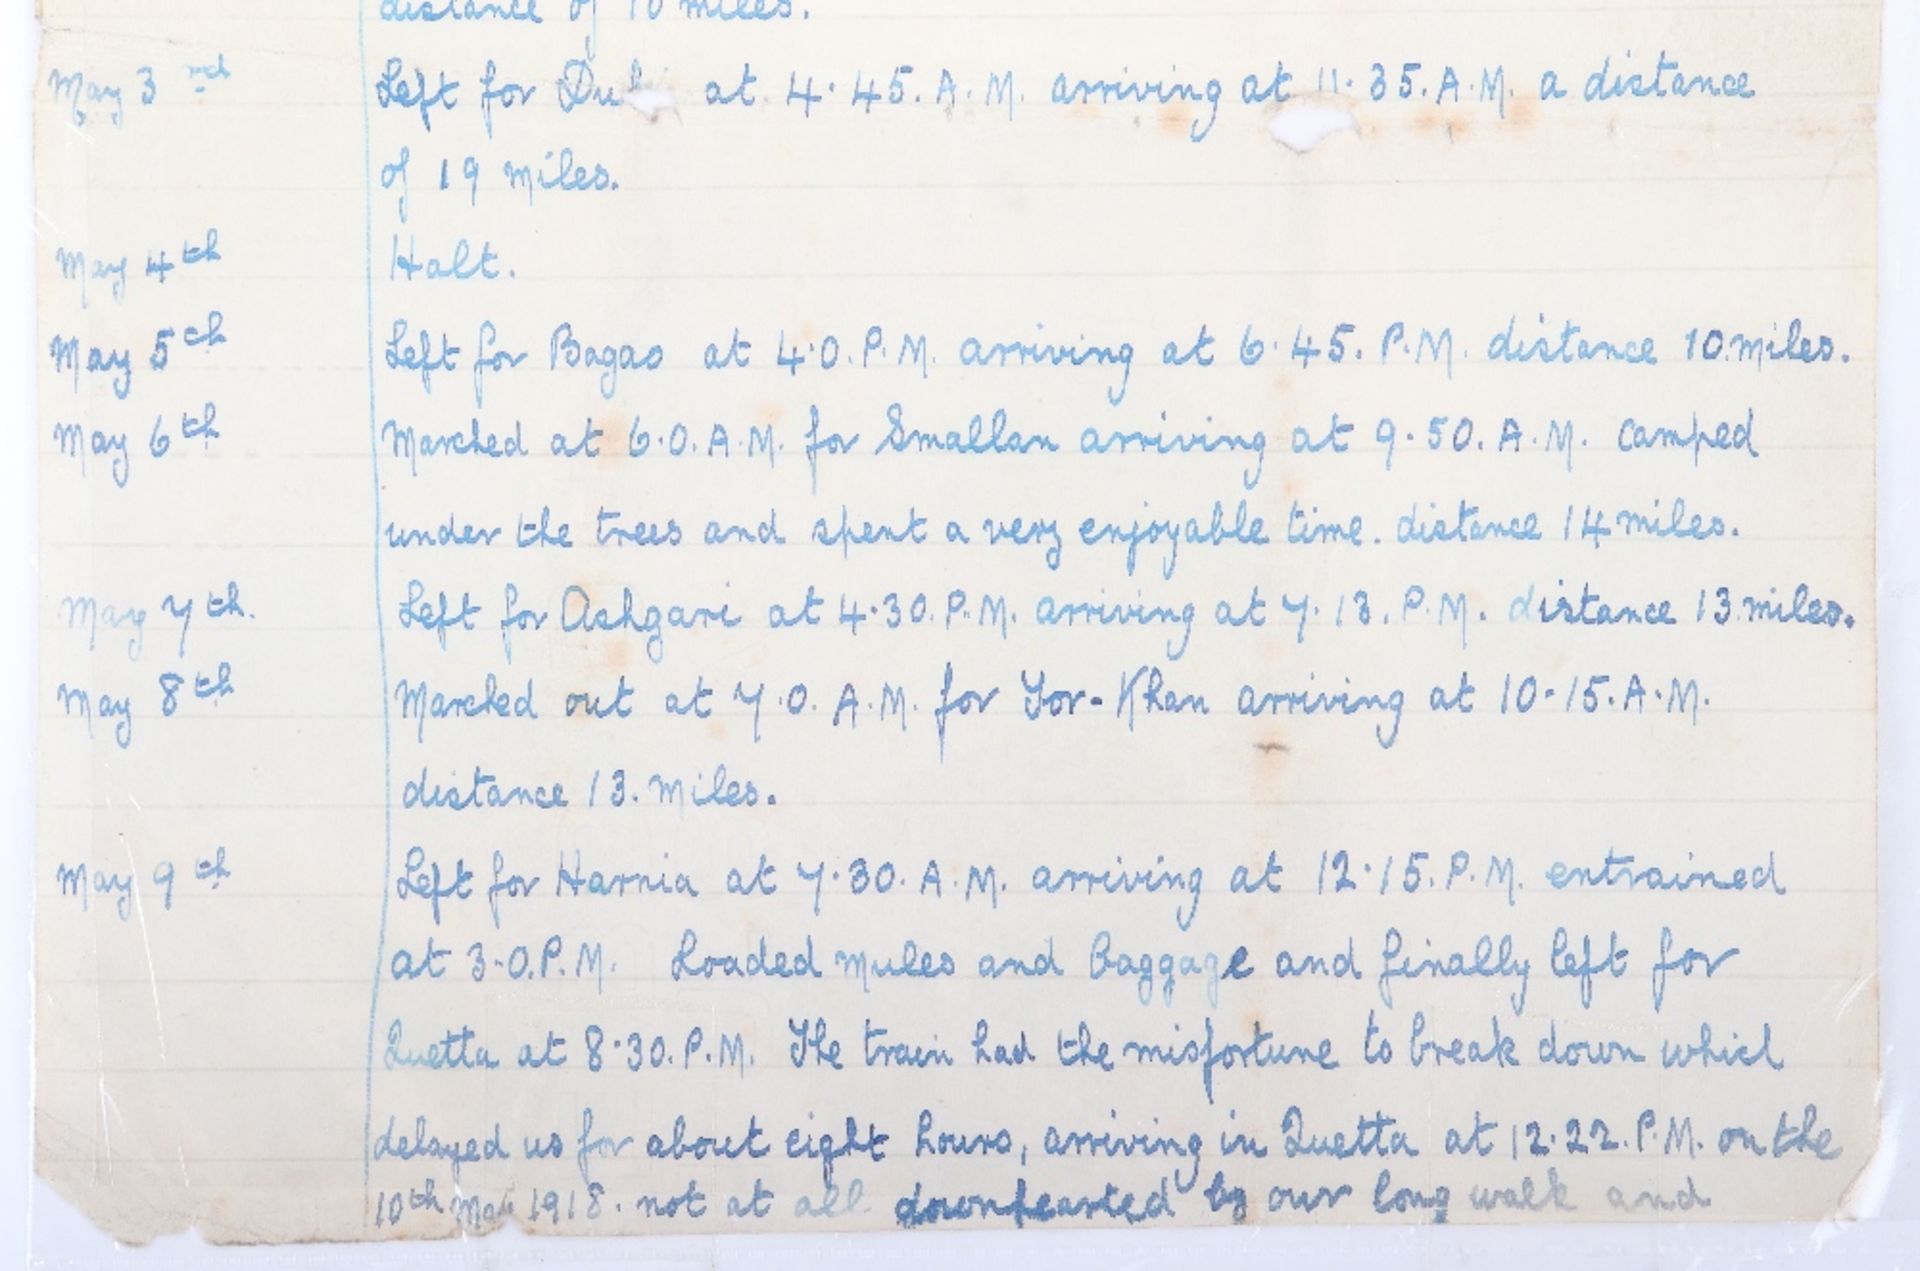 distance of 10 miles.
May 3rd Left for at 4.45.A.M. arriving at 11.35.A.M. a distance
of 19 miles.
May 4th Halt.
May 5th Left for Bagao at 4.0.P.M. arriving at 6.45.P.M. distance 10.miles.
May 6th Marched at 6.0.A.M. for Smallan arriving at 9.50.A.M. camped
under the trees and spent a very enjoyable time. distance 14 miles.
May 7th. Left for Ashgari at 4.30.P.M. arriving at 7.13.P.M. distance 13.miles.
May 8th Marched out at 7.0.A.M. for Tor-Khan arriving at 10-15.A.M.
distance 13.miles.
May 9th Left for Harnia at 7.30.A.M. arriving at 12.15.P.M. entrained
at 3.0.P.M. Loaded mules and baggage and finally left for
Quetta at 8.30.P.M. The train had the misfortune to break down which
delayed us for about eight hours, arriving in Quetta at 12.22.P.M. on the
10th May 1918. not at all downhearted by our long walk and